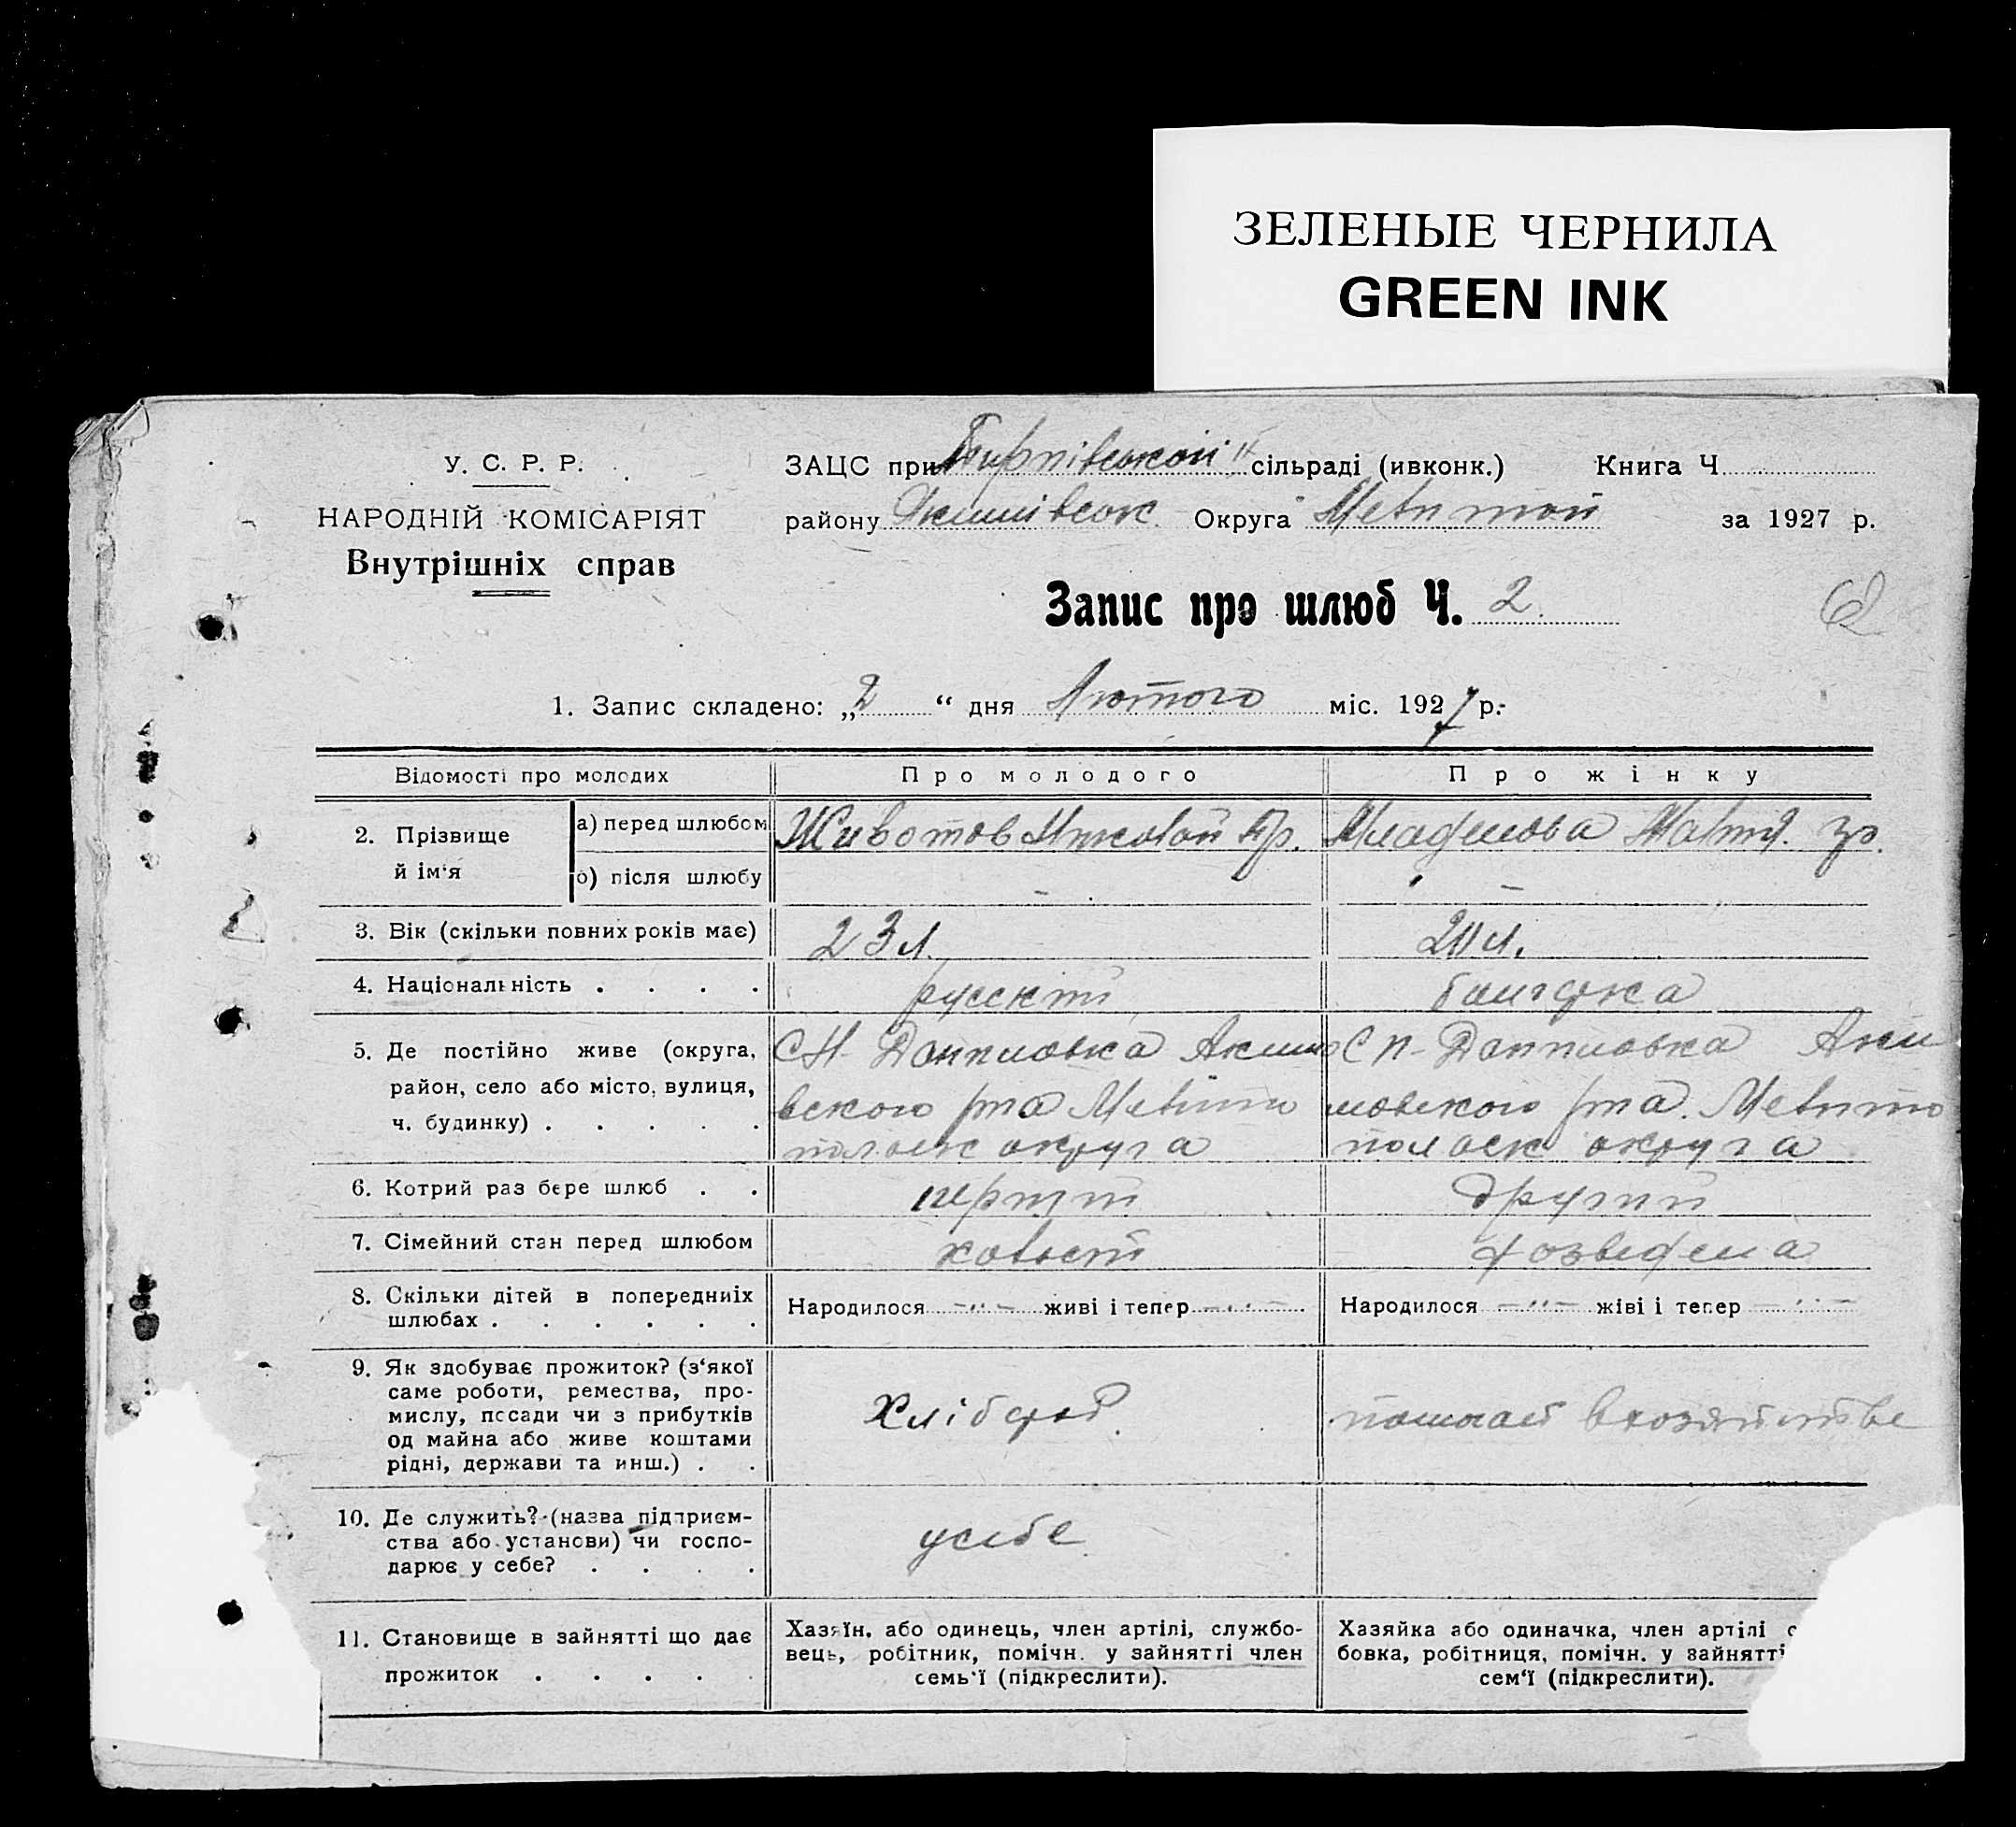 ЗЕЛЕНЫЕ ЧЕРНИЛА
GREEN INK
У. С. Р. Р.
НАРОДНІЙ КОМІСАРІЯТ
Внутрішніх справ
ЗАЦС при сільраді (ивконк.) Книга Ч
району Округа за 1927 р.
Запис про шлюб Ч. 2
62
1. Запис складено: „2“ дня Лютого міс. 1927 р.
Відомості про молодих
Про молодого
Про жінку
2. Прізвище й ім‘я
а) перед шлюбом
Животов Николай Гр.
Младенова
б) після шлюбу
3. Вік (скільки повних років має)
23 л.
л.
4. Національність . . . .
русский
болгарка
5. Де постійно живе (округа,
район, село або місто, вулиця,
ч. будинку) . . . . .
Даниловка Акимо
вского р-на Мелито
польск округа
Даниловка Аки
мовского р-на. Мелито
польск округа
6. Котрий раз бере шлюб . .
первий
другий
7. Сімейний стан перед шлюбом
холост
розведена
8. Скільки дітей в попередниіх
шлюбах . . . . . .
Народилося -"- живі і тепер -"-
Народилося -"- жіві і тепер -"-
9. Як здобуває прожиток? (з‘якої
саме роботи, ремества, про-
мислу, посади чи з прибутків
од майна або живе коштами
рідні, держави та инш.) . .
Хлібороб.
помогает в хозяйстве
10. Де служить? (назва підприєм-
ства або установи) чи госпо-
дарює у себе? . . . .
у себе
11. Становище в зайнятті що дає
прожиток . . . . .
Хазяїн, або одинець, член артілі, службо-
вець, робітник, помічн. у зайнятті член
семь‘ї (підкреслити).
Хазяйка або одиначка, член артілі с
бовка, робітниця, помічн. у зайнятті
сем‘ї (підкреслити).